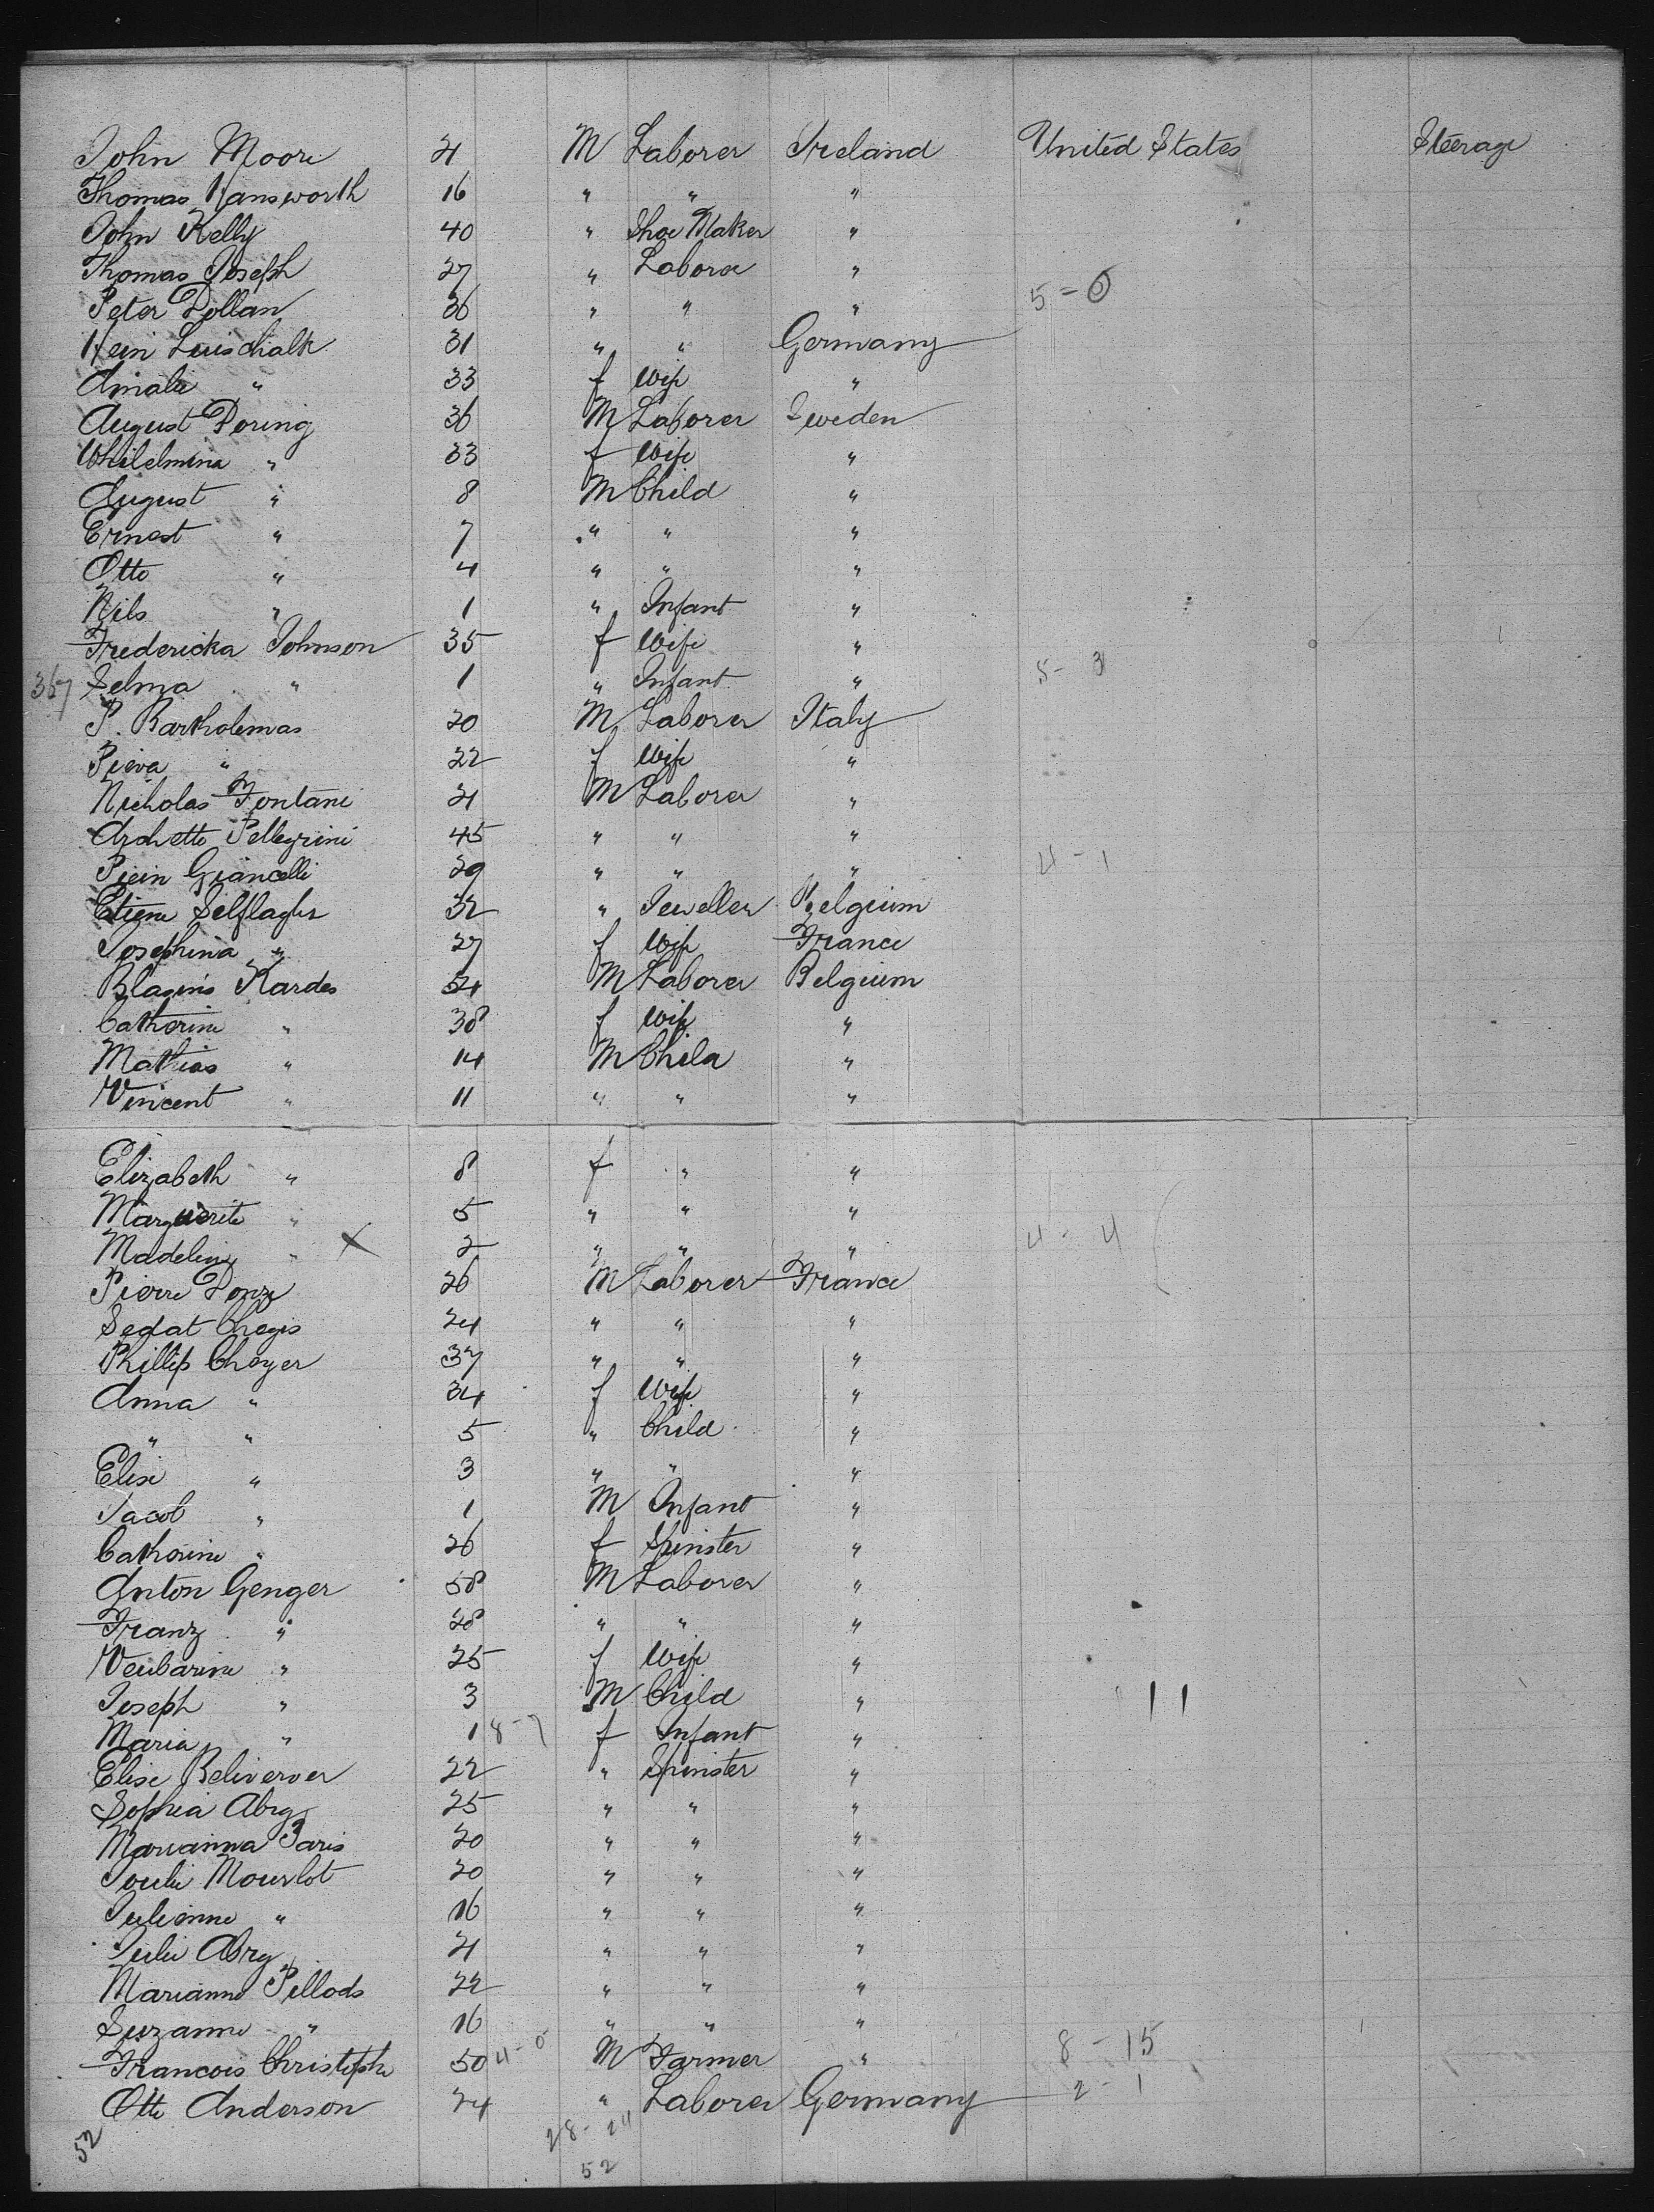 John Moore 21 M Laborer Ireland United States Steerage
Thomas Hansworth 16 " " "
John Kelly 40 " Shoe Maker "
Thomas Joseph 27 " Laborer "
Peter Dollan 36 " " " 5-0
Hein Luischalk 31 " " Germany
Amalie " 33 f Wife "
August Doring 36 M Laborer Sweden
Whilelmina " 33 f Wife "
August " 8 M Child "
Ernest " 7 " " "
Otto " 4 " " "
Nils " 1 " Infant "
Fredericka Johnson 35 f Wife "
367 Selma " 1 " Infant " 5-3
P. Bartholemas 20 M Laborer Italy
Pieva " 22 f Wife "
Nicholas Fontani 21 M Laborer "
Pellegrini 45 " " "
Piein Giancelli 29 " " " 4-1
Etiene 32 " Jeweller Belgium
Josephina " 27 f Wife France
Blasins Kardes 54 M Laborer Belgium
Catherine " 38 f Wife "
Mathias " 14 M Child "
Vincent " 11 " " "
Elizabeth " 8 f " "
Marguerite " 5 " " "
Madeline " X 2 " " " 4-4
Pierre Donze 26 M Laborer France
Sedat 24 " " "
Phillip Choyer 37 " " "
Anna " 34 f Wife "
" " 5 " Child "
Elise " 3 " " "
Jacob " 1 M Infant "
Catherine " 26 f Spinster "
Anton Genger 58 M Laborer "
Franz " 28 " " "
" 25 f Wife "
Joseph " 3 M Child " 11
Maria " 1 8-7 f Infant "
Elise 22 " Spinster "
Sophia Abry 25 " " "
Marianna Paris 20 " " "
Mourlot 20 " " "
Julienne " 16 " " "
Julie Abry 21 " " "
Marianne Pillods 22 " " "
Suzanne " 16 " " "
Francois Christophe 50 4-0 M Farmer " 8-15
Otto Anderson 24 " Laborer Germany 2-1
52 28-24
52